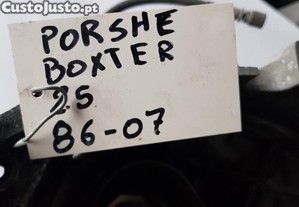 CustoJusto.pt
PORSHE
BOXTER
2.5
86-07